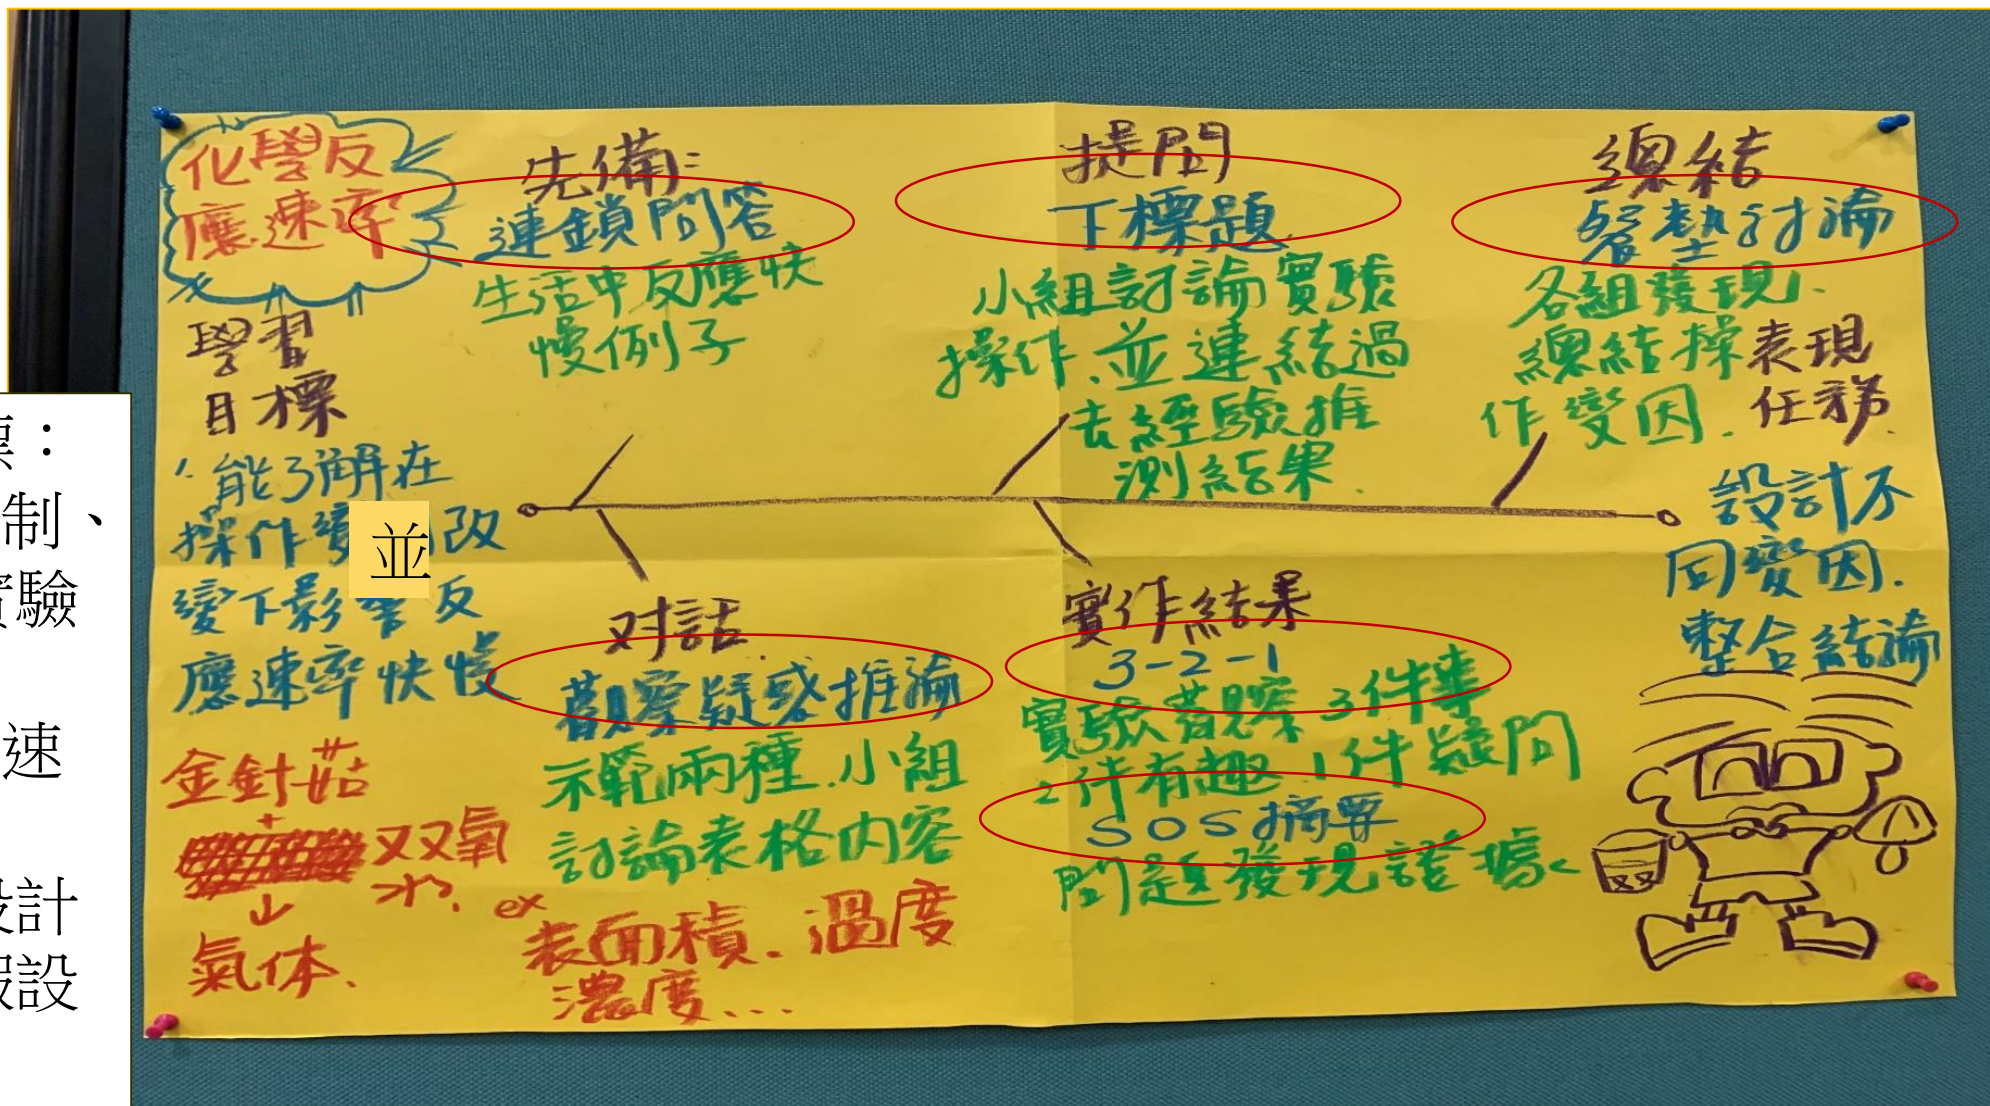 化學反
應速率
學習
目標
1.能了解在
操作變 改
變下影響反
應速率快慢
金針菇
+
双氧
水.
↓
氣体.
先備:
連鎖問答
生活中反應快
慢例子
提問
下標題
小組討論實驗
操作.並連結過
去經驗推
測結果.
總結
餐墊討論
各組發現.
總結操
作變因.
表現
任務.
設計不
同變因.
整合結論
对話
觀察疑惑推論
示範兩種.小組
討論表格内容
ex
表面積.溫度
濃度...
實作結果
3-2-1
實驗觀察3件事
2件有趣 1件疑問
SOS摘要
問題發現證據
並
標：
制、
實驗
速
設計
假設